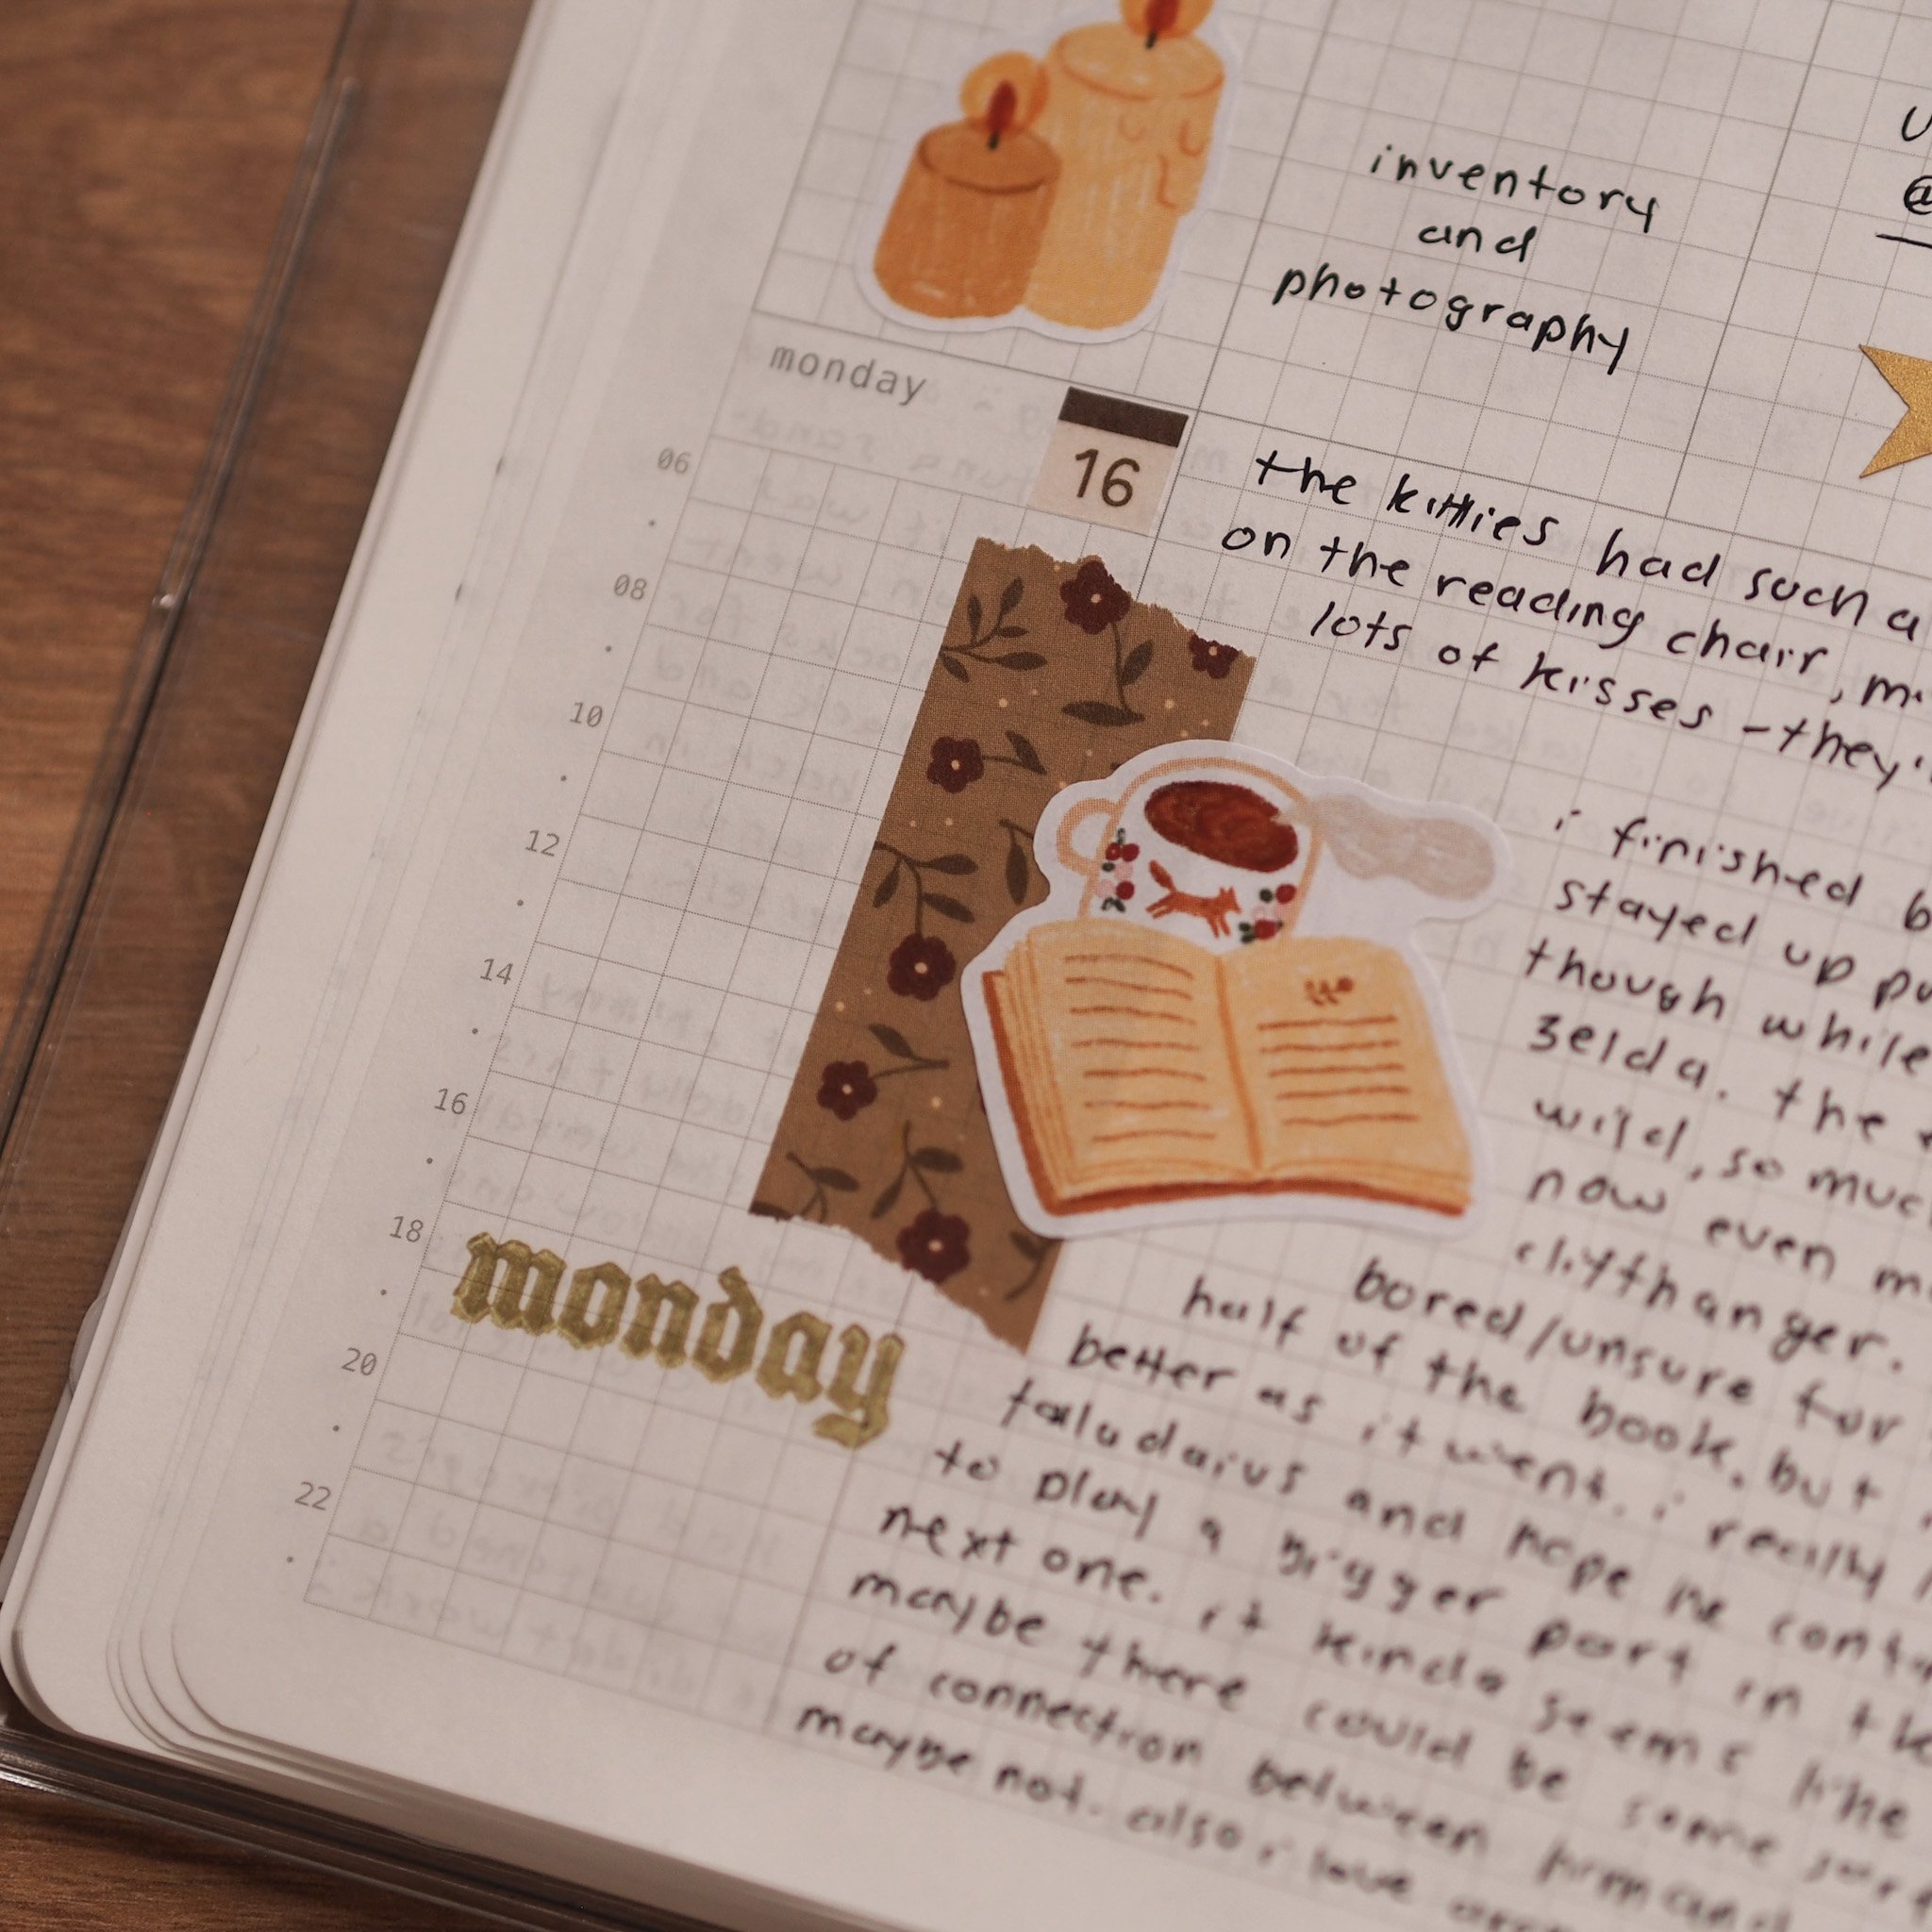 inventory
and
photography
@
monday
16
06
08
10
12
14
16
18
20
22
monday
the kitties had such a
on the reading chair,
lots of kisses - they'
i finished
stayed up
though while
zelda. the
wild, so much
now even
cliffhanger.
bored/unsure for
half of the book, but
better as it went. i really
to play a bigger part in the
and hope he
next one. it kinda seems like
maybe there could be some sort
of connection between
maybe not. also i love